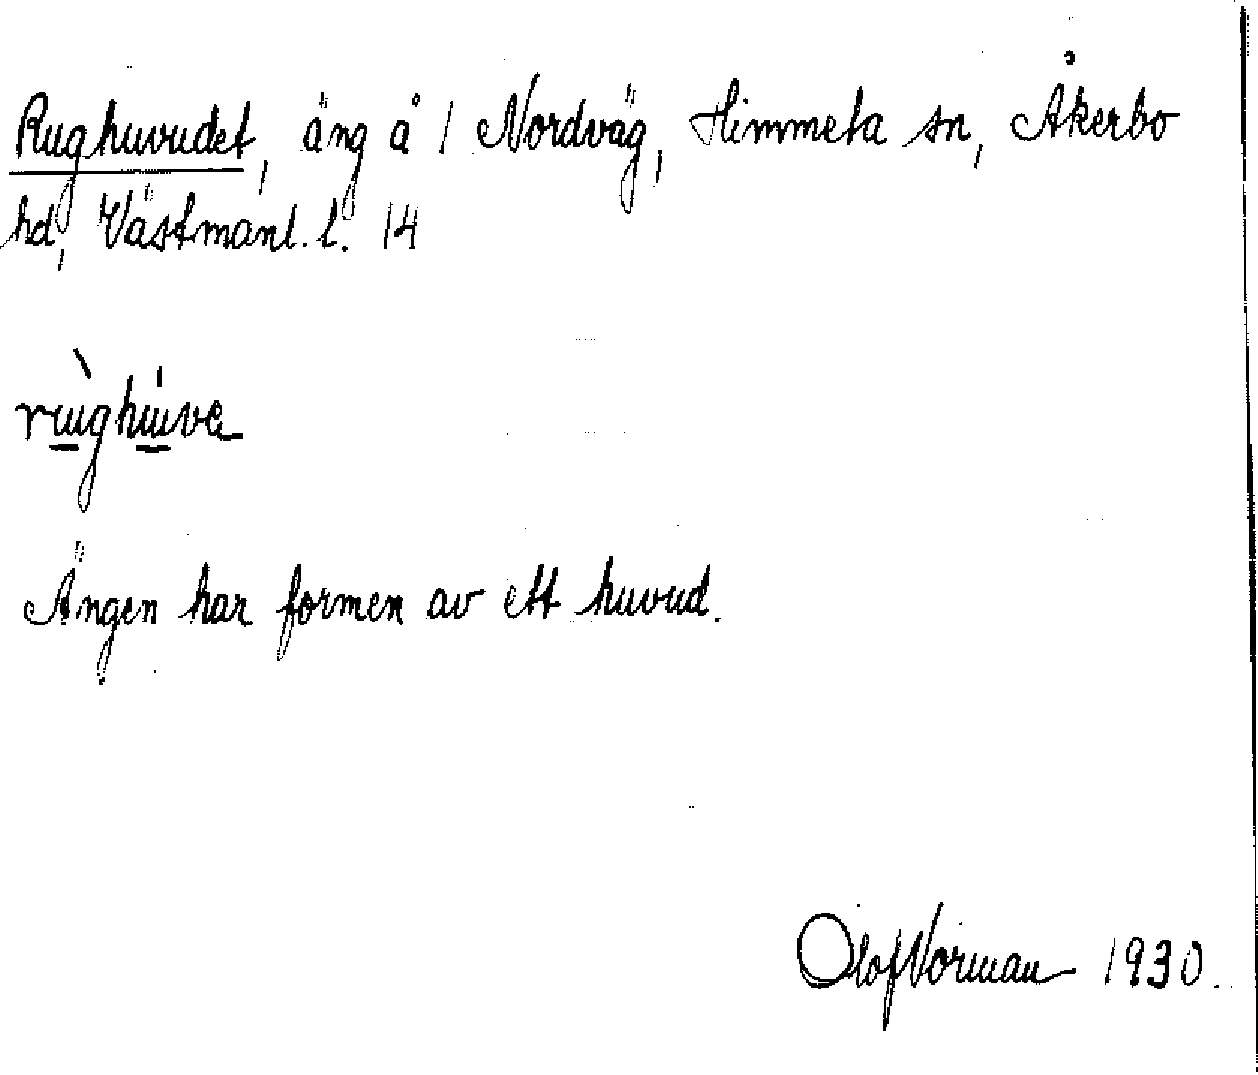 Rughuvudet, äng å 1 Nordväg, Himmeta sn, Åkerbo
hd, Västmanl. l. 14
rùghúva
Ängen har formen av ett huvud.
Olof Norman 1930.